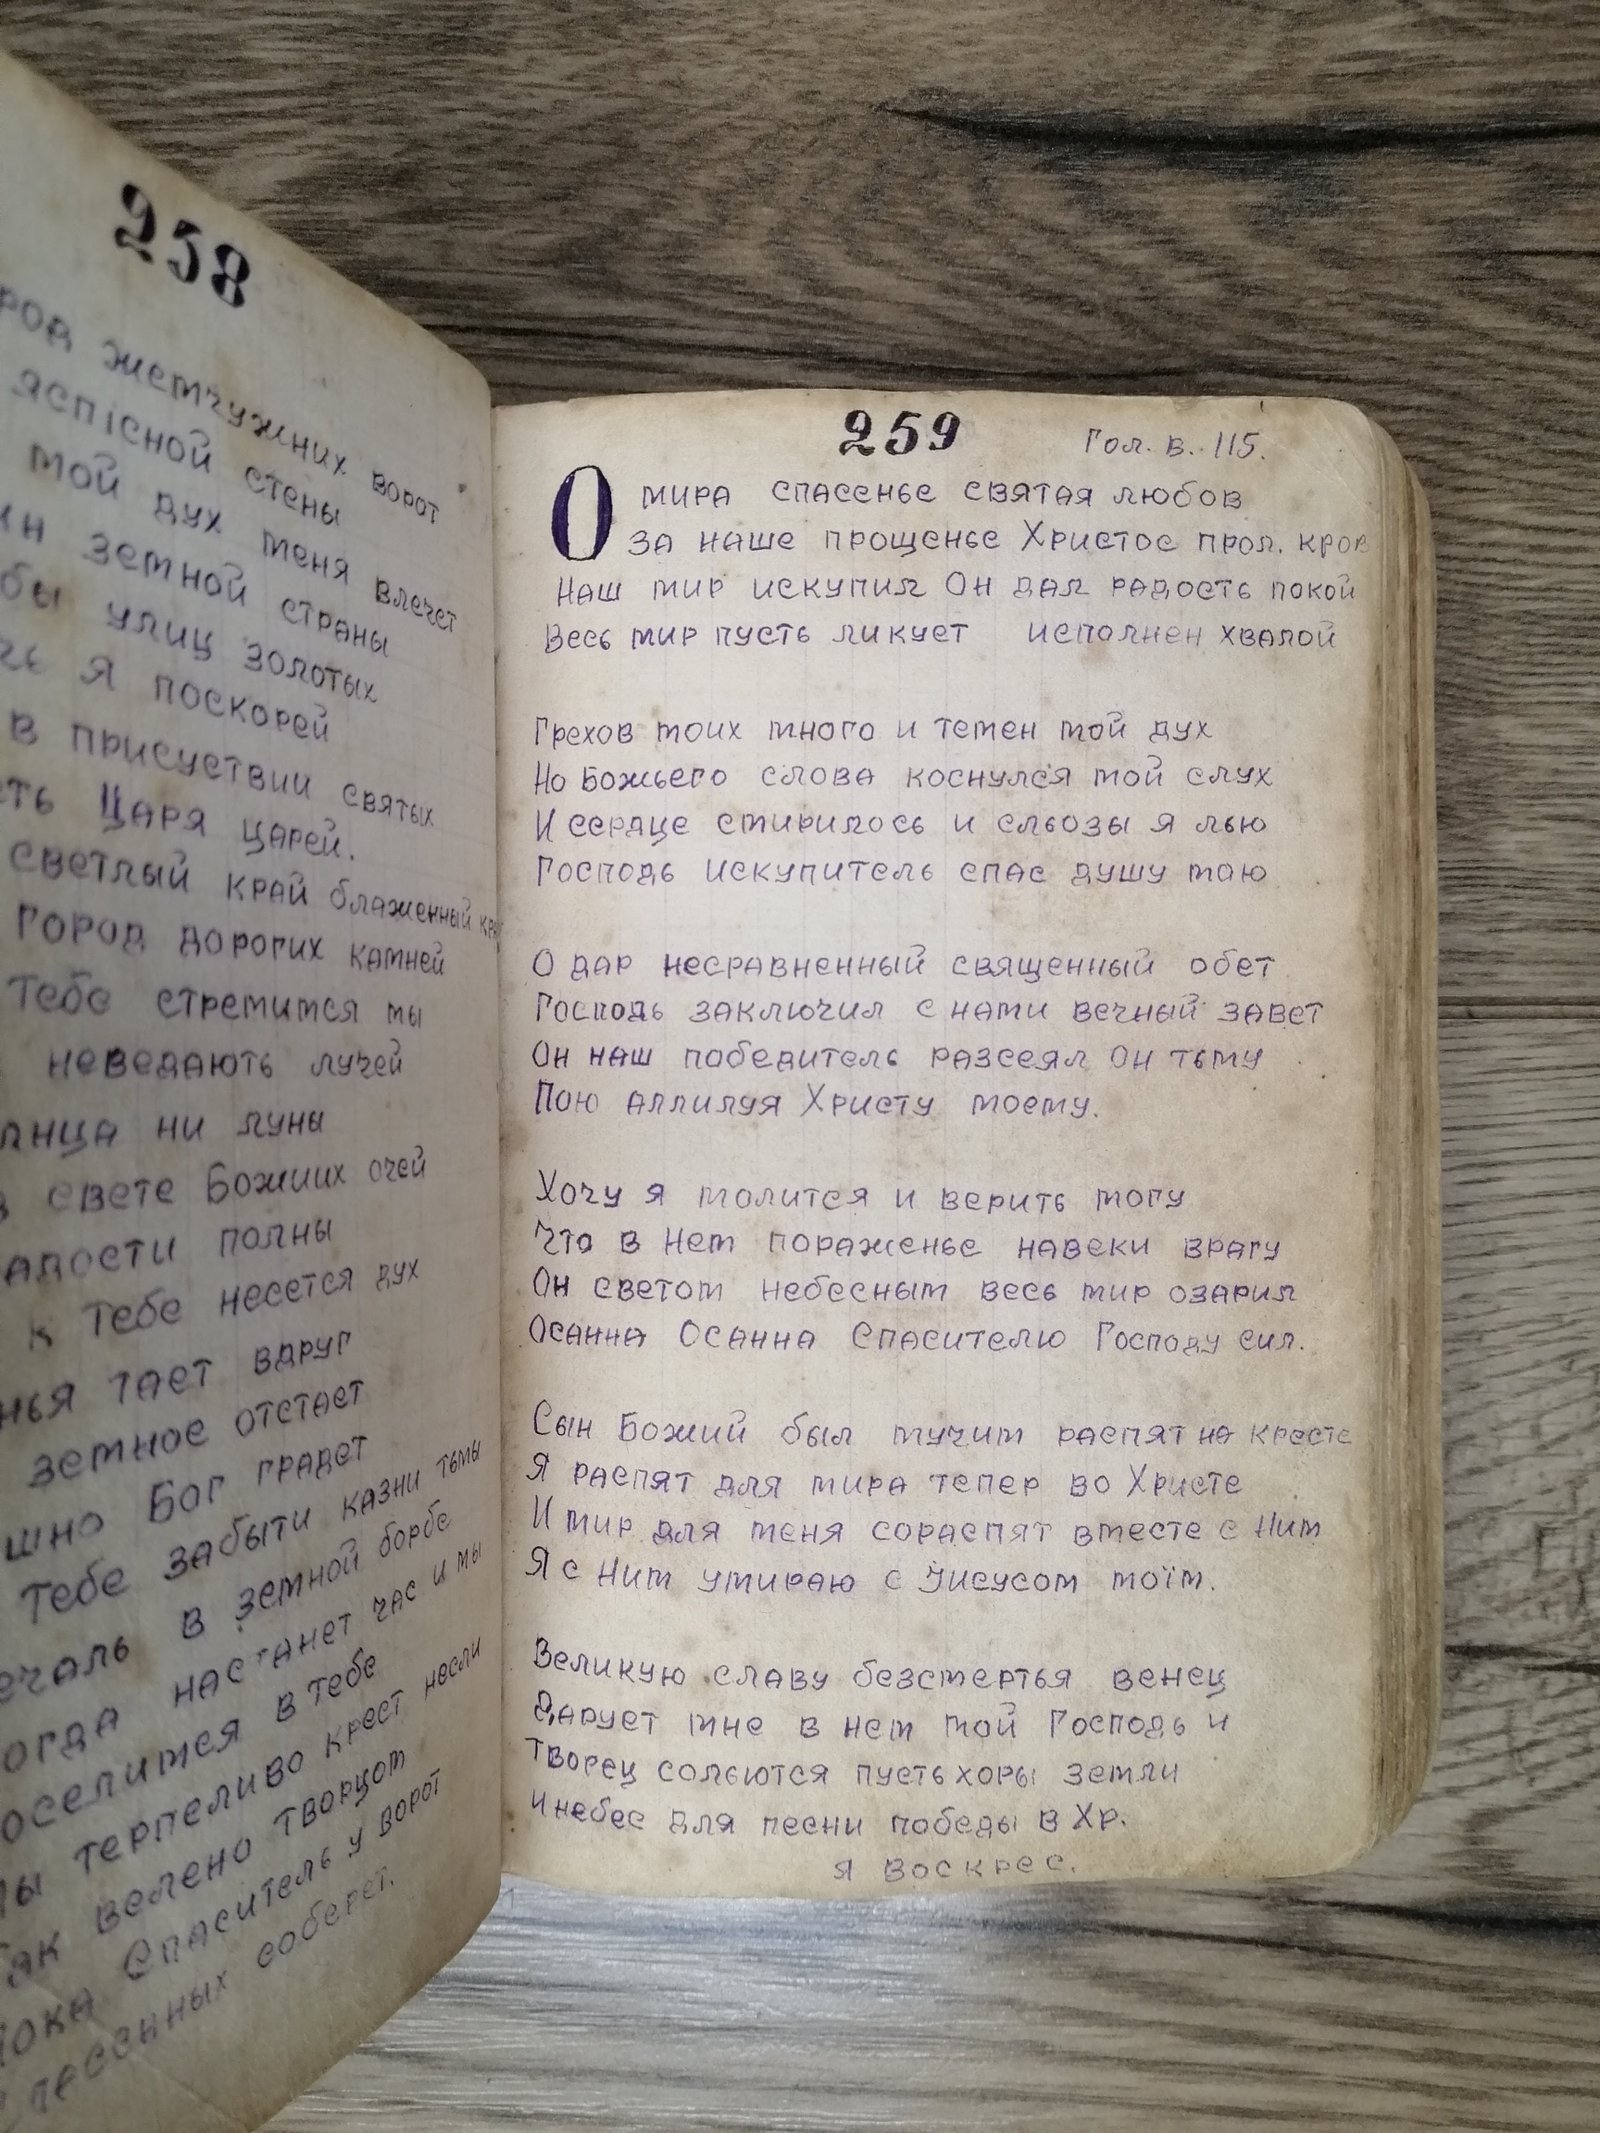 258
жемчужних ворот
яспісной стены
мой дух меня влечет
земной страны
улиц золотых
Я поскорей
в присуствии святых
Царя царей.
светлый край блаженный
город дорогих камней
Тебе стремимся мы
неведають лучей
ни луны
свете Божиих очей
полны
к Тебе несется дух
тает вдруг
земное отстает
Бог градет
Тебе забыти казни тьмы
в земной борбе
настанет час и мы
в тебе
терпеливо крест несли
велено творцом
Спаситель у ворот
соберет.
259
Гол. в. 115.
О мира спасенье святая любов
За наше прощенье Христос прол. кров
Наш мир искупил Он дал радость покой
Весь мир пусть ликует исполнен хвалой
Грехов моих много и темен мой дух
Но Божьего слова коснулся мой слух
И сердце смирилось и сльозы я лью
Господь искупитель спас душу мою
О дар несравненный священный обет
Господь заключил с нами вечный завет
Он наш победитель разсеял Он тьму
Пою аллилуя Христу моему.
Хочу я молится и верить могу
Что в Нем пораженье навеки врагу
Он светом небесным весь мир озарил
Осанна Осанна Спасителю Господу сил.
Сын Божий был мучим распят на кресте
Я распят для мира тепер во Христе
И мир для меня сораспят вместе с Ним
Я с Ним умираю с Иисусом моїм.
Великую славу безсмертья венец
Дарует мне в нем мой Господь и
Творец сольются пусть хоры земли
и небес для песни победы в Хр.
я воскрес.